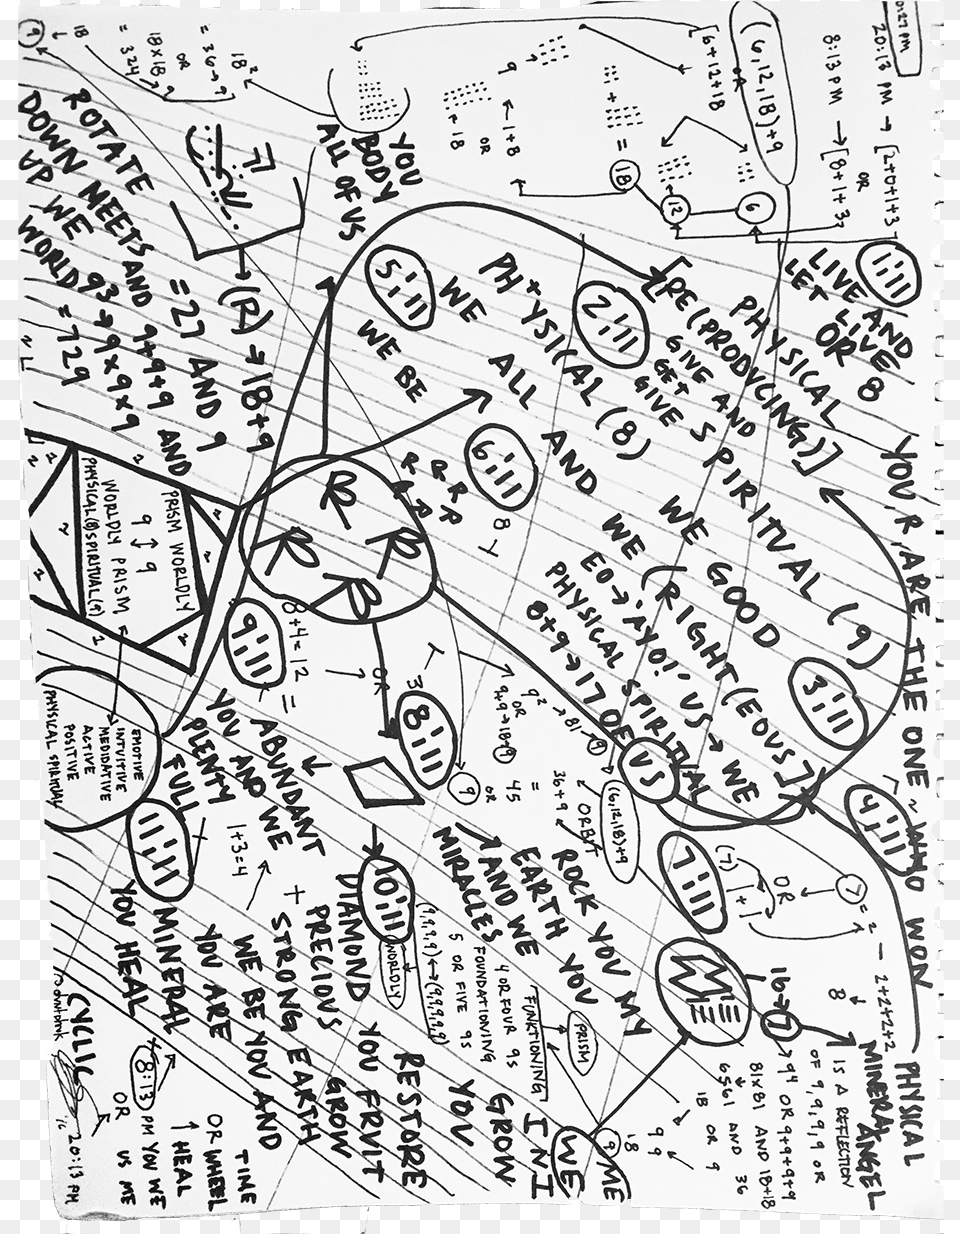 01:27 PM
20:13 PM → [2+0+1+3]
OR
8:13 PM → [8+1+3]
(6,12,18)+9
OR
[6+12+18
6
12
18
+
=
9 ← 1+8
OR
← 18
18²
= 36 → 9
OR
18×18
= 324
18
↓
9
YOU
BODY
ALL OF US
1:11
LIVE AND
LET LIVE
OR 8
PHYSICAL
[RE(PRODUCING)]
2:11
GIVE AND
GET
GIVE
5:11
WE
PH+YSICAL (8)
SPIRITUAL (9)
WE ALL
WE BE
AND
WE GOOD
6:11
WE (RIGHT(EOUS)]
3:11
EO → 'AYO!' US → WE
PHYSICAL SPIRITUAL
8+9 → 17 OF
US
YOU, R, ARE THE ONE ~ WHO WON
4:11
ROTATE
DOWN MEETS AND
UP WE
WORLD = 729
= 27 AND 9
9+9+9 AND
9³ → 9×9×9
~L
(R) → 18+9
R
R
R
R
R R
8
PRISM WORLDLY
9
↕
9
WORLDLY PRISM
PHYSICAL(8)SPIRITUAL(9)
EMOTIVE
INTUITIVE
MEDIDATIVE
ACTIVE
POSITIVE
PHYSICAL SPIRITUAL
9:11
8+4=12
=
OR
3
8:11
9² → 81, 9
OR
9+9 → 18+9
36+9
OR
ORBIT
(6,12,18)+9
=
45
OR
9
ABUNDANT
YOU AND WE
PLENTY
FULL
+
1+3=4
11:11
MINERAL
YOU HEAL
YOU ARE
10:11
DIAMOND
PRECIOUS
+
STRONG EARTH
WE BE YOU AND
WORLDLY
(9,9,9,9) ↔ (9,9,9,9)
5 OR FIVE 9S
FOUNDATIONING
4 OR FOUR 9S
FUNCTIONING
PRISM
ROCK YOU MY
EARTH YOU
AND WE
MIRACLES
7:11
(7)
OR
1+1
7 = 2 — 2+2+2+2
↓
8
ME
WE
16 → 7
IS A REFLECTION
OF 9,9,9,9 OR
9⁴ OR 9+9+9+9
81×81 AND 18+18
↓
6561 AND 36
18 OR 9
9
9
18
9
ME
WE
I N I
PHYSICAL
MINERAL ANGEL
GROW
YOU
RESTORE
YOU FRUIT
GROW
CYCLIC
8:13 PM YOU WE
OR US ME
TIME
OR WHEEL
↑ HEAL
20:13 PM